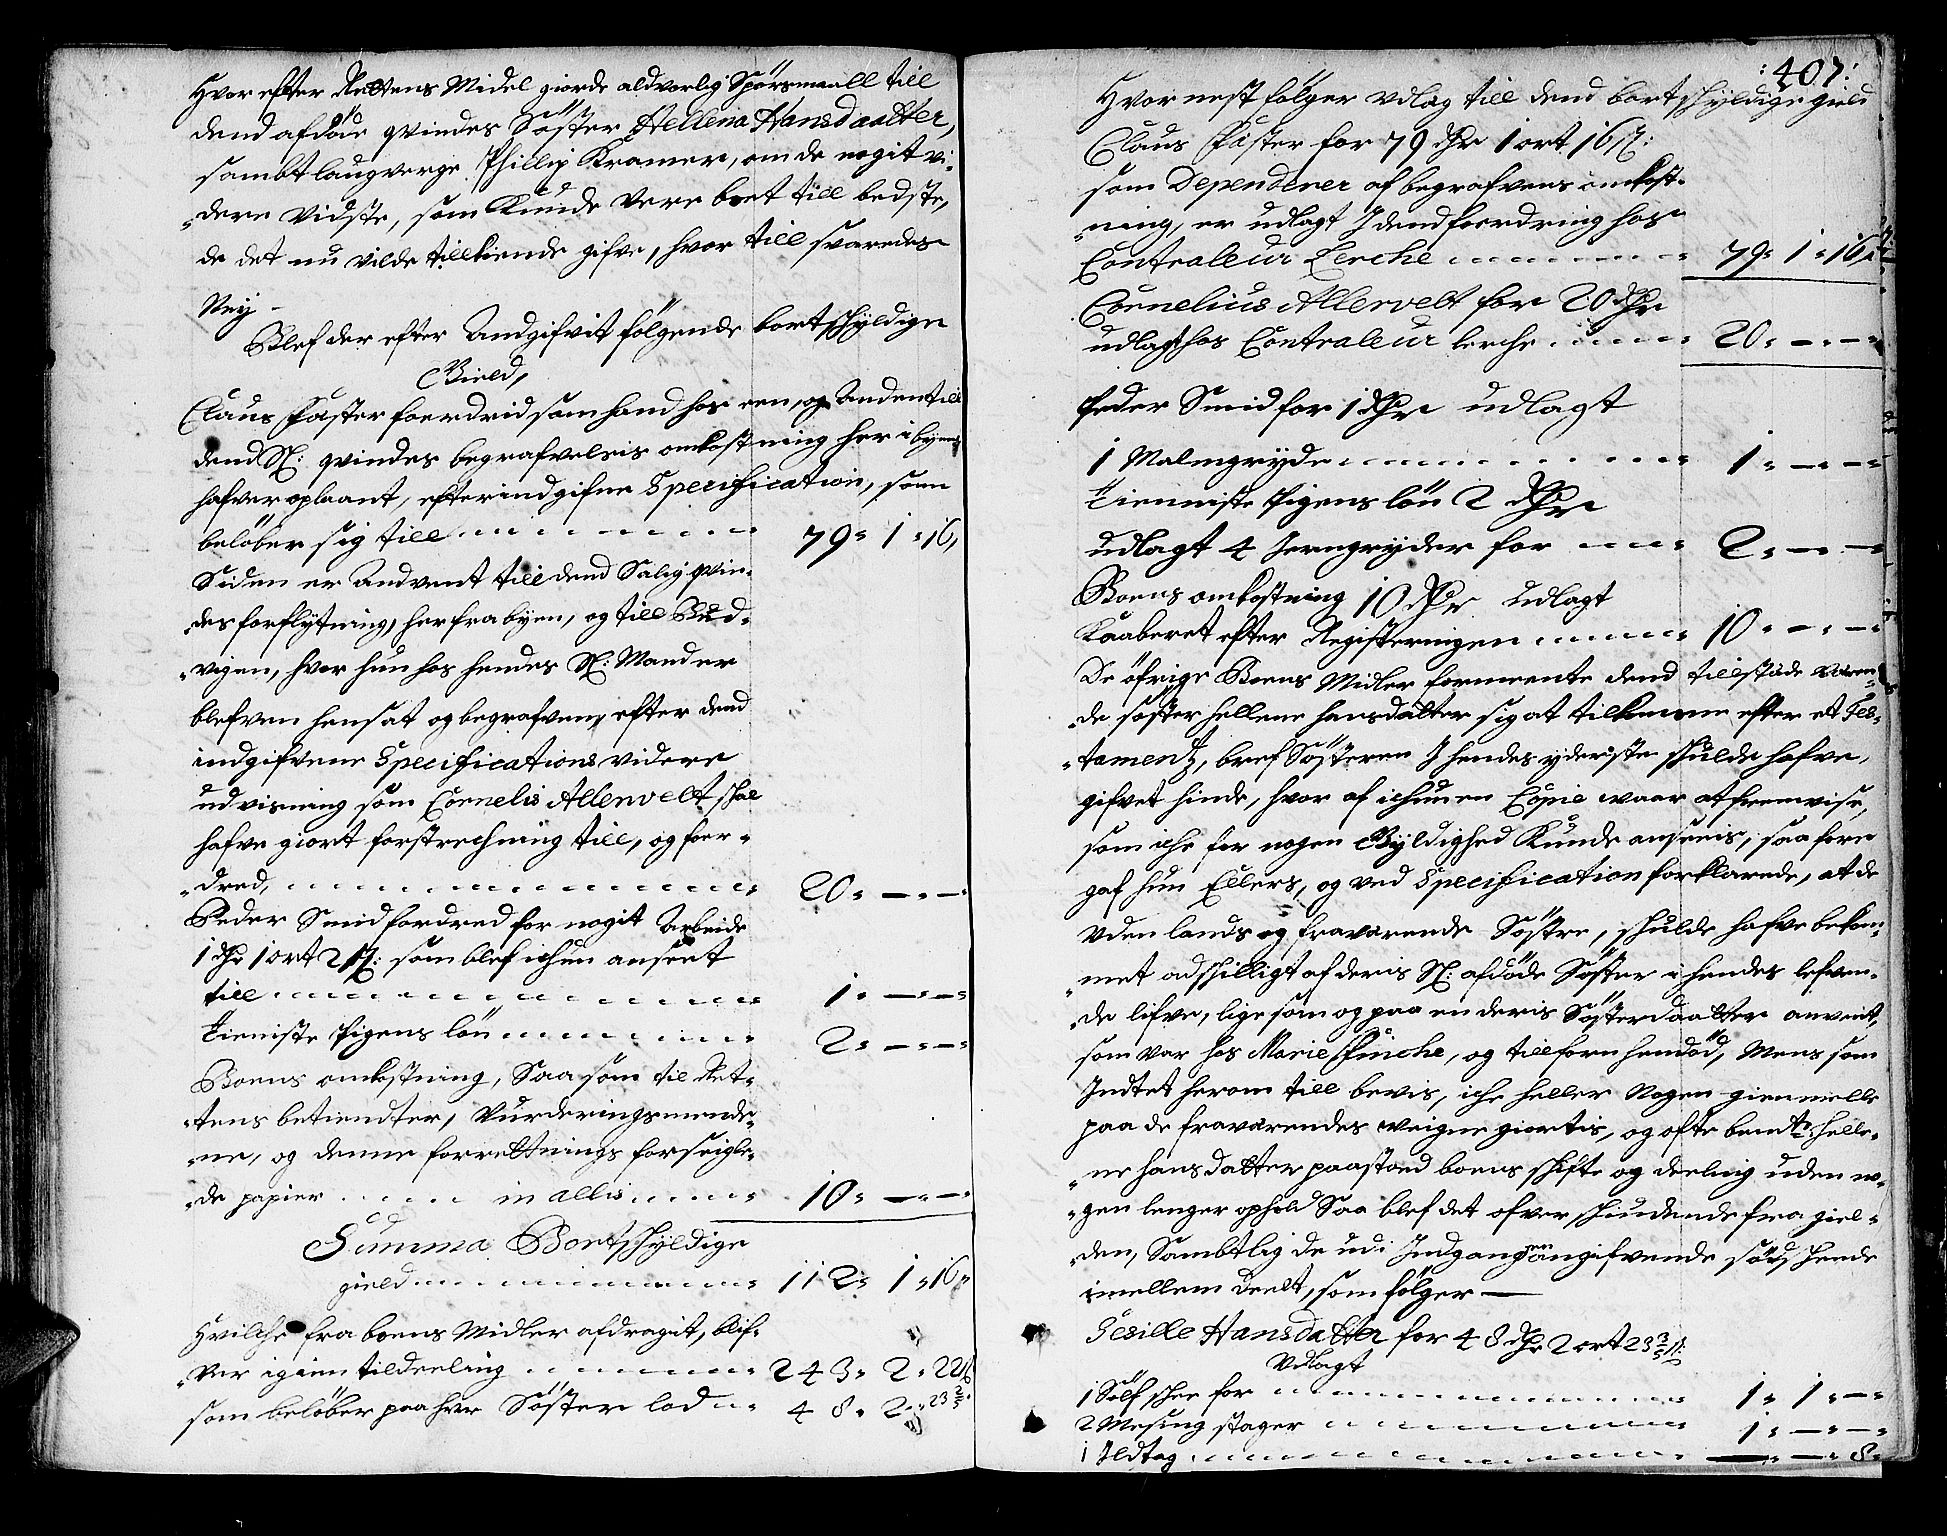 Hvor efter Rettens Midel giorde alvorlig Spørsmaall till
dend afdøde qvindes Søster Hellena Hansdaatter,
sambt laugverge Phillip Kramer, om de nogit vi-
dere vidste, som Kunde vere boet till bedste,
de det nu vilde tillkiende gifve, hvor till svaredes
Ney
Blef der efter Andgifvit følgende bortschyldige
Gield,
Claus Faster foerdrid som hand hos een, og Anden till
dend Sl: qvindes begrafvelsis omkostning her i byen
hafver oplaant, efter indgifne Specification, som
beløber sig till 79 - 1 - 16,
Siden er Andvent till dend Salig qvin-
des forflytning, her fra byen, og till Bud-
vigen, hvor hun hos hendes Sl: Mand er
blefven hensat og begrafven, efter dend
indgifvene Specifications videre
udvisning som Cornelis Allervelt schal
hafve giort forstrechning till, og foer-
dred, 20 - — - —
Peder Smid fordred for nogit Arbeide
1 dhr 1 ort 2 s: som blef ichun anseet
till 1 - — - —
Tieniste Pigens løn 2 - — - —
Boens omkostning, Saa som til Ret-
tens betiendter, Vurderingsmende-
ne, og denne forrettnings forseigle-
de papier in allis 10 - — - —
Summa Bortschyldige
gield 112 - 1 - 16
Hvilche fra boens Midler afdragit, blif-
ver igien til deeling 243 - 2 - 22
som beløber paa hver Søster lod 48 - 2 - 23 2/5
:407:
Hvor nest følger udlag till dend bortschyldige gield
Claus Faster for 79 dhr 1 ort 16 s:
som Dependerer af begrafvens omkost-
ning, er udlagt I dend foerdring hos
Contraleur Lerche 79 - 1 - 16
Cornelius Allervelt for 20 dhr
udlagt hos Contraleur Lerche 20 - — - —
Peder Smid for 1 dhr udlagt
1 Malmgryde 1 - — - —
Tienniste Pigens løn 2 dhr
udlagt 4 Jerngryder for 2 - — - —
Boens omkostning 10 dhr udlagt
Kaaberet efter Registeringen 10 - — - —
De øfrige Boens Midler formeente dend tillstæde væren-
de søster Hellene Hansdatter sig at tilkomme efter et Tes-
tamentz, bref Søsteren I hendes yderste schulde hafve,
gifvet hinde, hvor af ichun en Copie waar at fremvise,
som iche for nogen Gyldighed Kunde anseeis, saa fore
gaf hun Ellers, og ved Specification forklarede, at de
uden lands og fraværende Søstre, schulde hafve bekom-
met adschilligt af deris Sl: afdøde Søster i hendes lefven-
de lifve, lige som og paa en deris Søsterdaatter anvent,
som var hos Marie Finche, og tillforn hendød, Mens som
Intet herom till bevis, iche heller Nogen giennelle
paa de fraværendes weigne giortis, og ofte bemte: Helle-
ne Hansdatter paastoed boens schifte og deeling uden no-
gen lenger ophold Saa blef det ofver schiudende fra giel-
den, Sambtlig de udi Indgangen angifvende søschende
imellem deelt, som følger —
Sesille Hansdatter for 48 dhr 2 ort 23 2/5 s:
Udlagt
1 Sølf schee for 1 - 1 - —
2 Mesing stager 1 - — - —
1 Ildtag — - — - 8